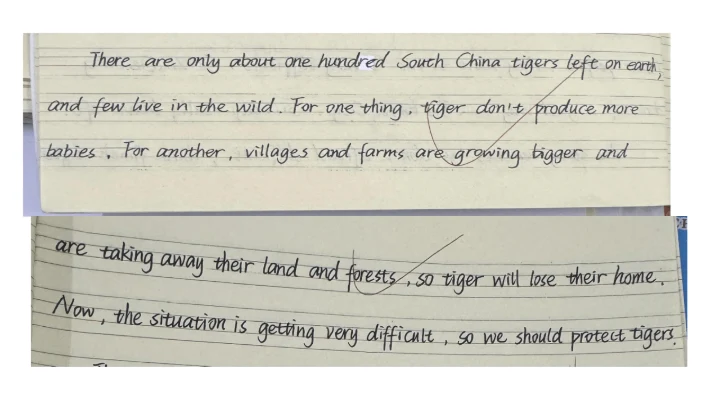 There are only about one hundred South China tigers left on earth,
and few live in the wild. For one thing, tiger don't produce more
babies. For another, villages and farms are growing bigger and
are taking away their land and forests, so tiger will lose their home.
Now, the situation is getting very difficult, so we should protect tigers.